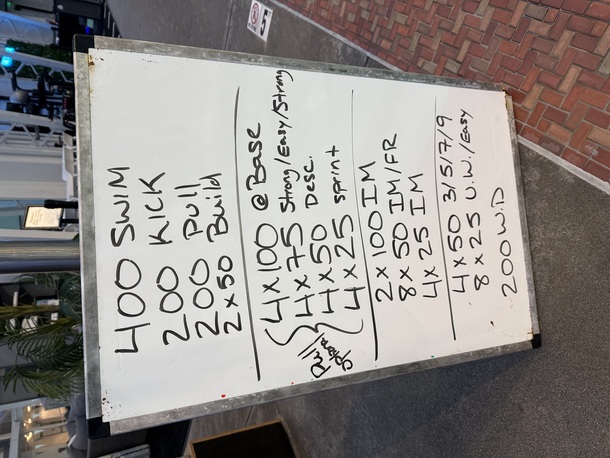 400 SWIM
200 KICK
200 Pull
2 x 50 Build
4 x 100 @ Base
4 x 75 Strong/Easy/Strong
4 x 50 Desc.
4 x 25 sprint
Pull
2 x 100 IM
8 x 50 IM/FR
4 x 25 IM
4 x 50 3/5/7/9
8 x 25 U.W./Easy
200 W.D